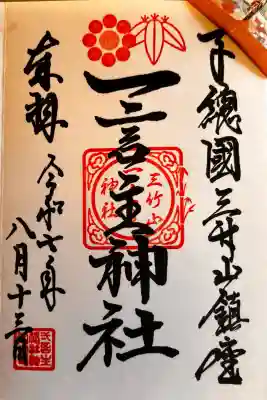 下總國三竹山鎮座
一言主神社
三竹山
神社
奉拝 令和六年
八月十三日